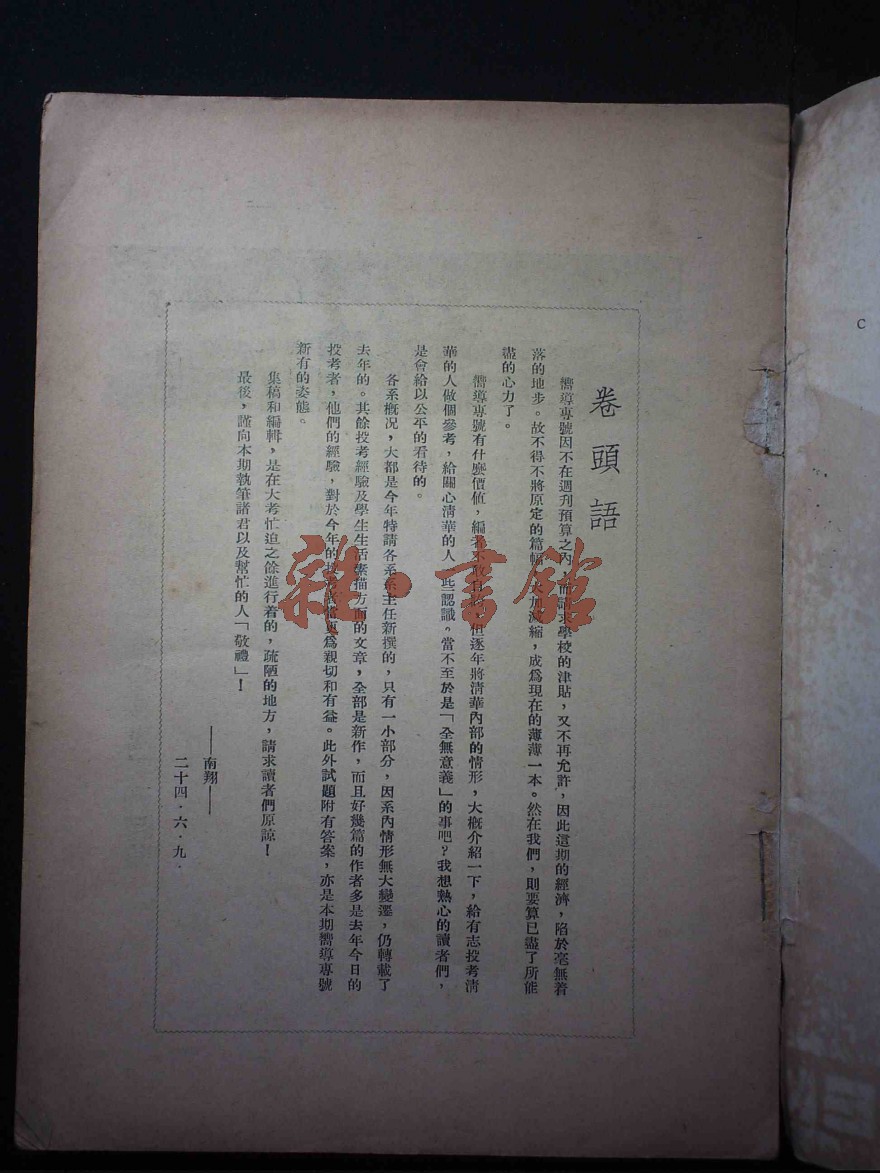 卷頭語
嚮導專號因不在週刊預算之內，而請求學校的津貼，又不再允許，因此這期的經濟，陷於毫無着
落的地步。故不得不將原定的篇幅，大加減縮，成爲現在的薄薄一本。然在我們，則要算已盡了所能
盡的心力了。
嚮導專號有什麼價值，編者不敢自，但逐年將清華內部的情形，大概介紹一下，給有志投考清
華的人做個參考，給關心清華的人一些認識。當不至於是「全無意義」的事吧？我想熱心的讀者們，
是會給以公平的看待的。
各系概况，大都是今年特請各系系主任新撰的，只有一小部分，因系內情形無大變遷，仍轉載了
去年的。其餘投考經驗及學生生活素描方面的文章，全部是新作，而且好幾篇的作者多是去年今日的
投考者，他們的經驗，對於今年的投考者當更爲親切和有益。此外試題附有答案，亦是本期嚮導專號
新有的姿態。
集稿和編輯，是在大考忙迫之餘進行着的，疏陋的地方，請求讀者們原諒！
最後，謹向本期執筆諸君以及幫忙的人「敬禮」！
——南翔——
二十四·六·九·
雜·書館
C